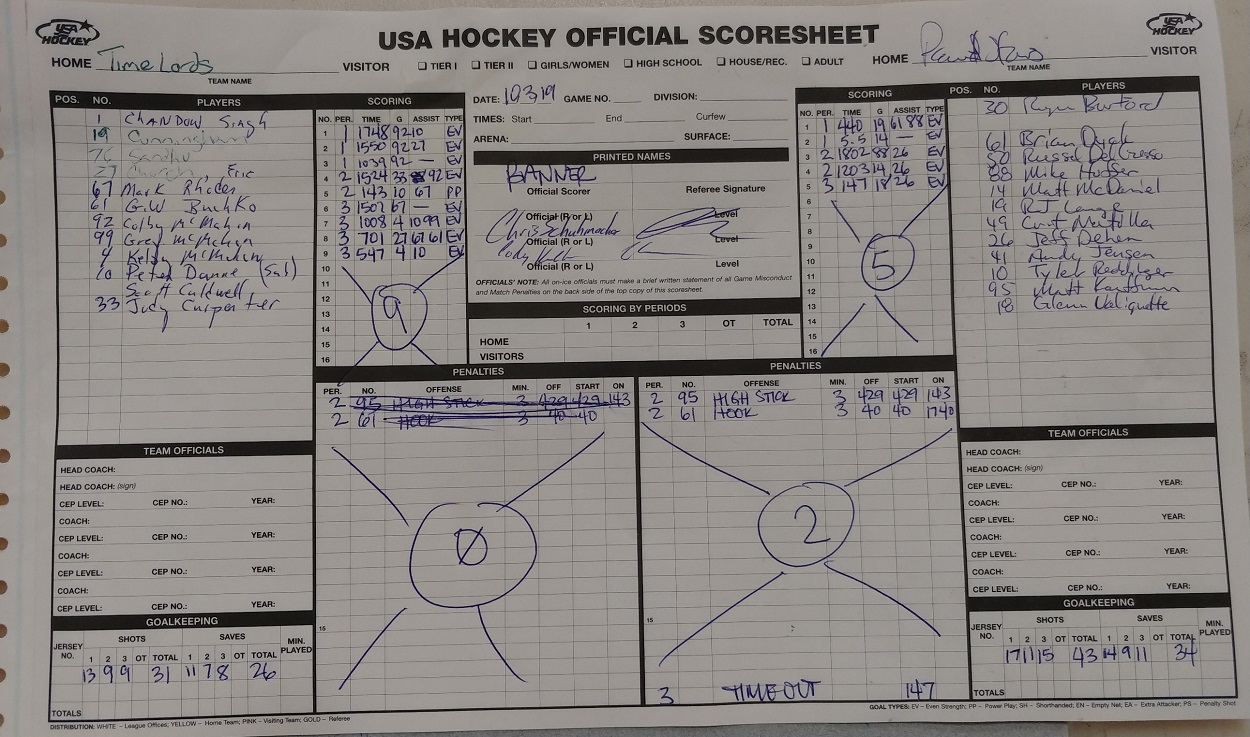 USA HOCKEY
USA HOCKEY OFFICIAL SCORESHEET
USA HOCKEY
HOME Time Lords VISITOR
TEAM NAME
☐ TIER I ☐ TIER II ☐ GIRLS/WOMEN ☐ HIGH SCHOOL ☐ HOUSE/REC. ☐ ADULT
HOME VISITOR
TEAM NAME
POS. NO. PLAYERS
1 Chandow Singh
19
76 Sandhu
27 , Eric
67 Mark Rhodes
61 G.W. Buchko
92 Colby McMahin
99 Greg
4 Kelby
10 Peter Danne (Sub)
Scott Caldwell
33 Judy Carpenter
SCORING
NO. PER. TIME G ASSIST TYPE
1 1 1748 92 10 EV
2 1 1550 92 27 EV
3 1 1039 92 — EV
4 2 1524 33 92 EV
5 2 143 10 67 PP
6 3 1507 67 — EV
7 3 1008 4 10 99 EV
8 3 701 27 67 61 EV
9 3 547 4 10 EV
10
11
12
13
14
15
16
9
DATE: 10 3 19 GAME NO. DIVISION:
TIMES: Start End Curfew
ARENA: SURFACE:
PRINTED NAMES
BANNER
Official Scorer Referee Signature
Official (R or L) Level
Chris Schuhmacher
Official (R or L) Level
Cody
Official (R or L) Level
OFFICIALS' NOTE: All on-ice officials must make a brief written statement of all Game Misconduct
and Match Penalties on the back side of the top copy of this scoresheet.
SCORING BY PERIODS
1 2 3 OT TOTAL
HOME
VISITORS
SCORING
NO. PER. TIME G ASSIST TYPE
1 1 440 19 61 88 EV
2 1 5.5 14 — EV
3 2 1802 88 26 EV
4 2 1203 14 26 EV
5 3 147 18 26 EV
6
7
8
9
10
11
12
13
14
15
16
5
POS. NO. PLAYERS
30 Ryan Burford
61 Brian
50 Russel DelGresso
88 Mike
14 Matt McDaniel
19 RJ Lange
49 Curt
26 Jeff Dehen
41 Andy Jensen
10 Tyler
95 Matt
18 Glenn Valiquette
PENALTIES
PER. NO. OFFENSE MIN. OFF START ON
2 95 HIGH STICK 3 429 429 143
2 61 HOOK 3 40 40
15
Ø
PENALTIES
PER. NO. OFFENSE MIN. OFF START ON
2 95 HIGH STICK 3 429 429 143
2 61 HOOK 3 40 40 1740
15
2
3 TIME OUT 147
TEAM OFFICIALS
HEAD COACH:
HEAD COACH: (sign)
CEP LEVEL: CEP NO.: YEAR:
COACH:
CEP LEVEL: CEP NO.: YEAR:
COACH:
CEP LEVEL: CEP NO.: YEAR:
COACH:
CEP LEVEL: CEP NO.: YEAR:
GOALKEEPING
JERSEY NO. SHOTS SAVES MIN. PLAYED
1 2 3 OT TOTAL 1 2 3 OT TOTAL
13 9 9 31 11 7 8 26
TOTALS
TEAM OFFICIALS
HEAD COACH:
HEAD COACH: (sign)
CEP LEVEL: CEP NO.: YEAR:
COACH:
CEP LEVEL: CEP NO.: YEAR:
COACH:
CEP LEVEL: CEP NO.: YEAR:
COACH:
CEP LEVEL: CEP NO.: YEAR:
GOALKEEPING
JERSEY NO. SHOTS SAVES MIN. PLAYED
1 2 3 OT TOTAL 1 2 3 OT TOTAL
17 11 15 43 14 9 11 34
TOTALS
DISTRIBUTION: WHITE – League Offices; YELLOW – Home Team; PINK – Visiting Team; GOLD – Referee
GOAL TYPES: EV – Even Strength; PP – Power Play; SH – Shorthanded; EN – Empty Net; EA – Extra Attacker; PS – Penalty Shot